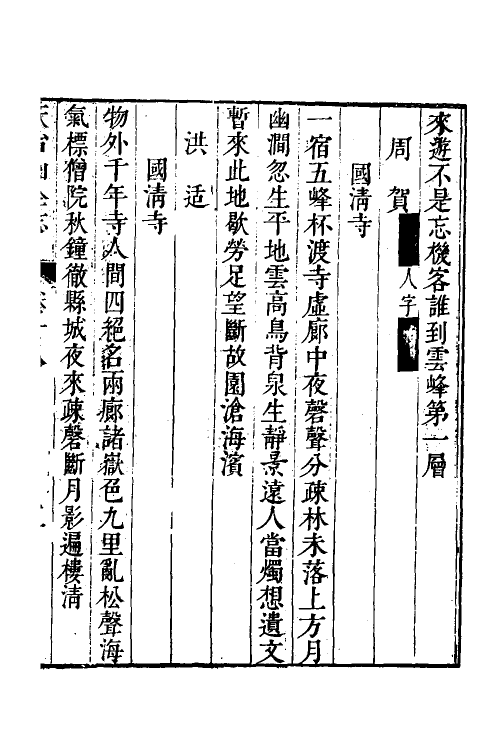 來遊不是忘機客誰到雲峰第一層
周賀
人字
國清寺
一宿五峰杯渡寺虛廊中夜磬聲分疎林未落上方月
幽澗忽生平地雲高鳥背泉生靜景遠人當燭想遺文
暫來此地歇勞足望斷故園滄海濱
洪适
國清寺
物外千年寺人間四絕名兩廊諸嶽色九里亂松聲海
氣標僧院秋鐘徹縣城夜來疎磬斷月影遍樓清